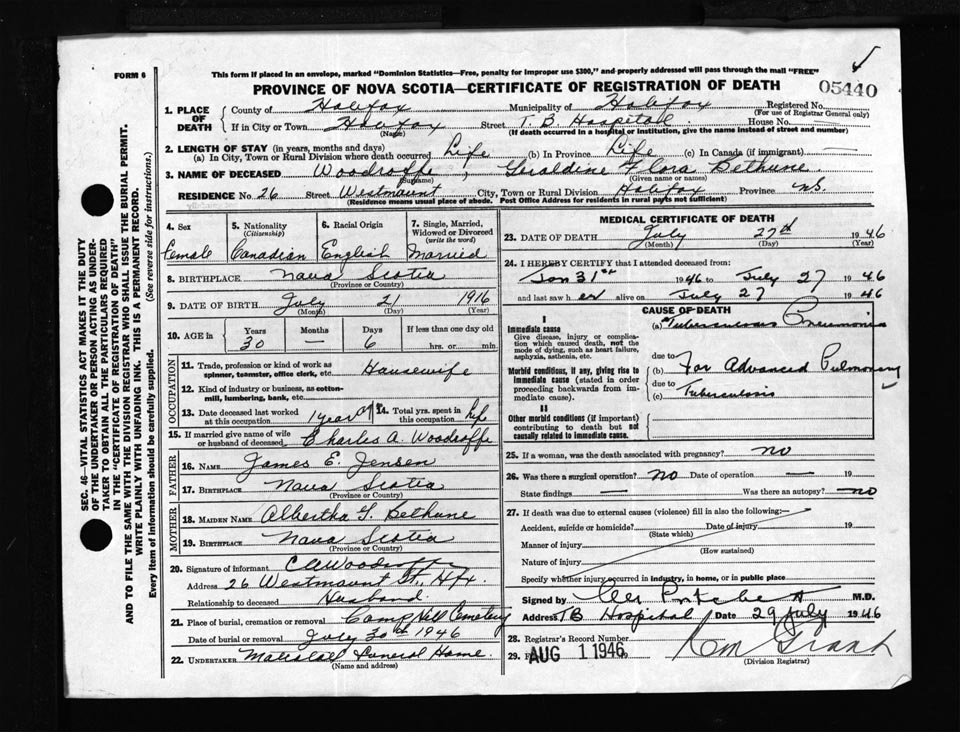 FORM 6
This form if placed in an envelope, marked "Dominion Statistics—Free, penalty for improper use $300," and properly addressed will pass through the mail "FREE"
PROVINCE OF NOVA SCOTIA—CERTIFICATE OF REGISTRATION OF DEATH
05440
1. PLACE OF DEATH
County of Halifax Municipality of Halifax Registered No.
(For use of Registrar General only)
If in City or Town Halifax Street T. B. Hospital House No. —
(Name) (If death occurred in a hospital or institution, give the name instead of street and number)
2. LENGTH OF STAY (in years, months and days)
(a) In City, Town or Rural Division where death occurred Life (b) In Province Life (c) In Canada (if immigrant) —
3. NAME OF DECEASED Woodroffe, Geraldine Flora Bethune
(Surname) (Given name or names)
RESIDENCE No 26 Street Westmount City, Town or Rural Division Halifax Province N.S.
(Residence means usual place of abode. Post Office Address for residents in rural parts not sufficient)
SEC. 46—VITAL STATISTICS ACT MAKES IT THE DUTY
OF THE UNDERTAKER OR PERSON ACTING AS UNDER-
TAKER TO OBTAIN ALL THE PARTICULARS REQUIRED
IN THE "CERTIFICATE OF REGISTRATION OF DEATH"
AND TO FILE THE SAME WITH THE DIVISION REGISTRAR WHO SHALL ISSUE THE BURIAL PERMIT.
WRITE PLAINLY WITH UNFADING INK. THIS IS A PERMANENT RECORD.
Every item of information should be carefully supplied. (See reverse side for instructions.)
4. Sex 5. Nationality (Citizenship) 6. Racial Origin 7. Single, Married, Widowed or Divorced (write the word)
Female Canadian English Married
8. BIRTHPLACE Nova Scotia
(Province or Country)
9. DATE OF BIRTH July 21 1916
(Month) (Day) (Year)
10. AGE in Years Months Days If less than one day old
30 — 6 hrs. or min.
OCCUPATION
11. Trade, profession or kind of work as spinner, teamster, office clerk, etc. Housewife
12. Kind of industry or business, as cotton-mill, lumbering, bank, etc.
13. Date deceased last worked at this occupation 1 year ago 14. Total yrs. spent in this occupation life
15. If married give name of wife or husband of deceased Charles A. Woodroffe
FATHER
16. NAME James E. Jensen
17. BIRTHPLACE Nova Scotia
(Province or Country)
MOTHER
18. MAIDEN NAME Albertha G. Bethune
19. BIRTHPLACE Nova Scotia
(Province or Country)
20. Signature of informant C A Woodroffe
Address 26 Westmount St., Hfx.
Relationship to deceased Husband
21. Place of burial, cremation or removal Camp Hill Cemetery
Date of burial or removal July 30th 1946
22. UNDERTAKER Funeral Home.
(Name and address)
MEDICAL CERTIFICATE OF DEATH
23. DATE OF DEATH July 27th 1946
(Month) (Day)
24. I HEREBY CERTIFY that I attended deceased from:
Jan 31st 1946 to July 27 1946
and last saw her alive on July 27 1946
CAUSE OF DEATH
I
Immediate cause
Give disease, injury or complication which caused death, not the mode of dying, such as heart failure, asphyxia, asthenia, etc.
(a) Tuberculous Pneumonia
due to
Morbid conditions, if any, giving rise to immediate cause (stated in order proceeding backwards from immediate cause).
(b) Far Advanced Pulmonary
due to
(c) Tuberculosis
II
Other morbid conditions (if important) contributing to death but not causally related to immediate cause.
25. If a woman, was the death associated with pregnancy? no
26. Was there a surgical operation? no Date of operation — 19
State findings — Was there an autopsy? no
27. If death was due to external causes (violence) fill in also the following:—
Accident, suicide or homicide? Date of injury 19
(State which)
Manner of injury
(How sustained)
Nature of injury
Specify whether injury occurred in industry, in home, or in public place
Signed by M.D.
Address TB Hospital Date 29 July 1946
28. Registrar's Record Number
29. AUG 1 1946
(Division Registrar)